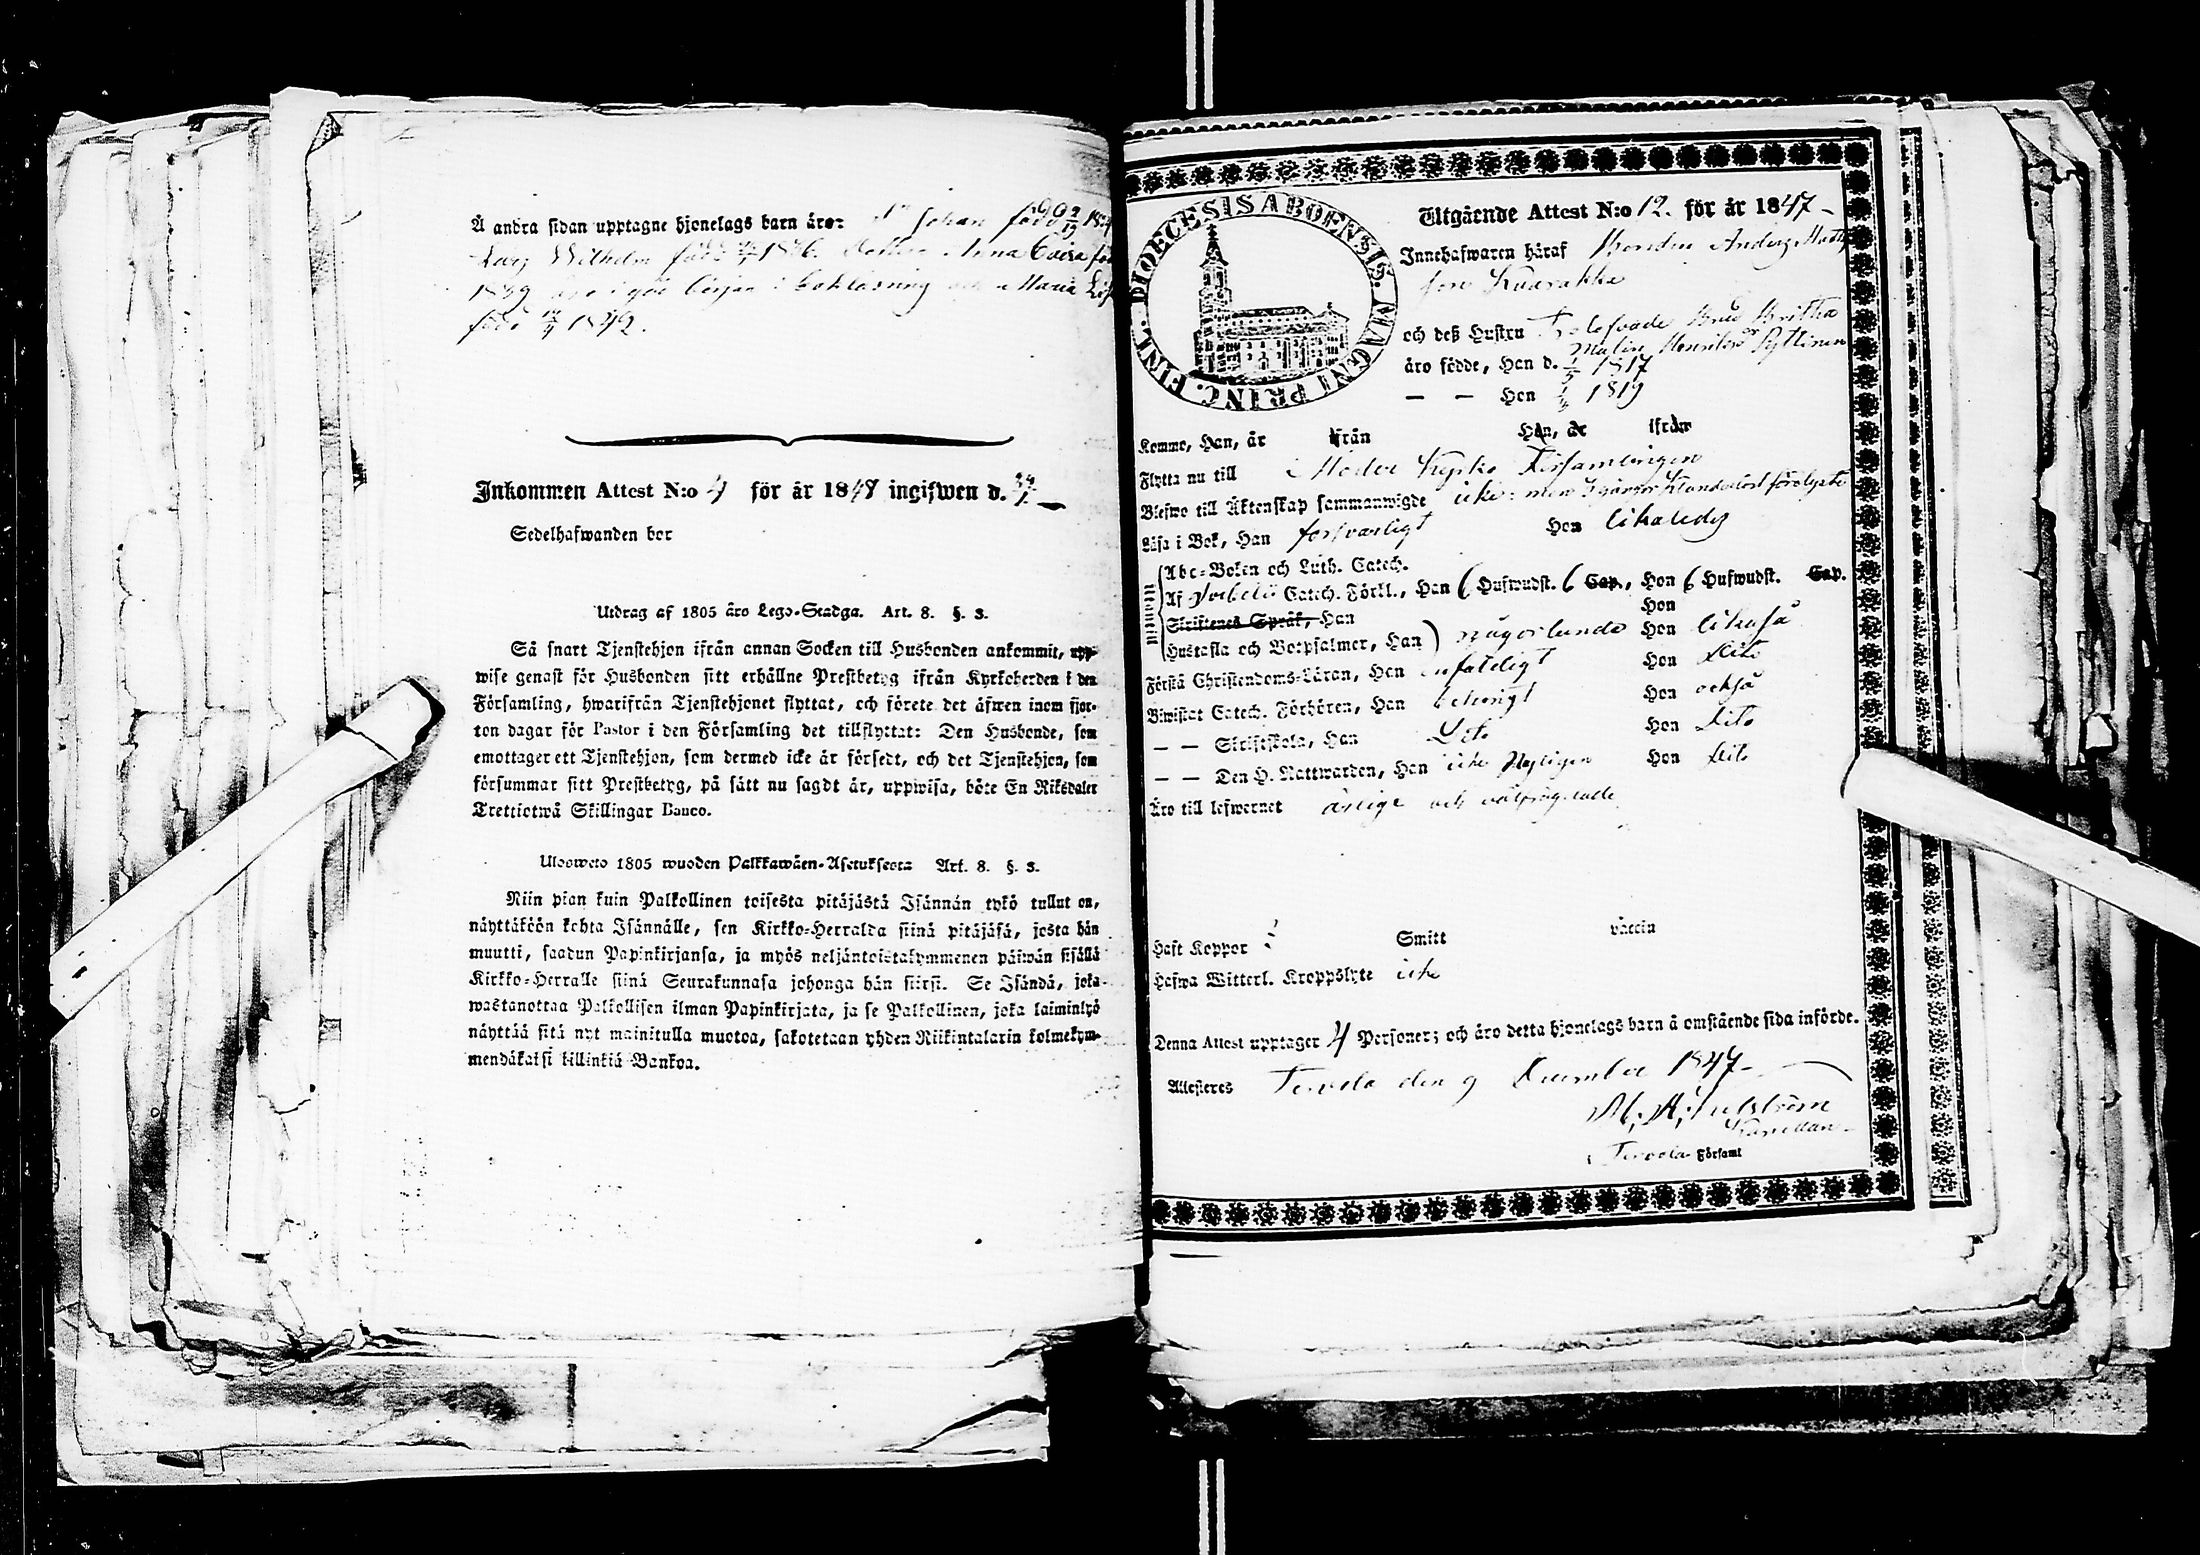 Å andra sidan upptagne hjonelags barn äro: Johan född
Lars Wilhelm född 1836. Anna Caisa
1839 äro i god början i bokläsning och Maria
född 1842.
Inkommen Attest N:o 4 för år 1848 ingifwen d.
Sedelhafwanden bor
Utdrag af 1805 års Lego-Stadga. Art. 8. §. 3.
Så snart Tjenstehjon ifrån annan Socken till Husbonden ankommit, upp-
wise genast för Husbonden sitt erhållne Prestbetyg ifrån Kyrkoherden i den
Församling, hwarifrån Tjenstehjonet flyttat, och förete det äfwen inom fjor-
ton dagar för Pastor i den Församling det tillflyttat: Den Husbonde, som
emottager ett Tjenstehjon, som dermed icke är försedt, och det Tjenstehjon, som
försummar sitt Prestbetyg, på sätt nu sagdt är, uppwisa, böte En Riksdaler
Trettiotwå Skillingar Banco.
Ulosweto 1805 wuoden Palkkawäen-Asetuksesta Art. 8. §. 3.
Niin pian kuin Palkollinen toisesta pitäjästä Isännän tykö tullut on,
näyttäköön kohta Isännälle, sen Kirkko-Herralda siinä pitäjäsä, josta hän
muutti, saadun Papinkirjansa, ja myös neljäntoistakymmenen päiwän sisällä
Kirkko-Herralle siinä Seurakunnasa johonga hän siirsi. Se Isändä, joka
wastanottaa Palkollisen ilman Papinkirjata, ja se Palkollinen, joka laiminlyö
näyttää sitä nyt mainitulla muotoa, sakotetaan yhden Riikintalarin kolmekym-
mendäkaksi killinkiä Bankoa.
DIOECESIS ABOENSIS. MAGNI PRINC. FINL.
Utgående Attest N:o 12. för år 1847
Innehafwaren häraf Bonden Anders Matts
son Kuarakka
och deß Hustru Trolofvade Brud Britha
Malin Henriksdr Pyttinen
äro födde, Han d. 1817
— — Hon 1819
Komne, Han, år ifrån Hon, år ifrån
Flytta nu till i Moder Kyrko Församlingen
Blefwo till Äktenskap sammanwigde icke: men 3 gånger klanderlöst förelyste
Läsa i Bok, Han försvarligt Hon likaledes
Abc-Boken och Luth. Catech.
Af Catech. Förkl., Han 6 Hufwudst. 6 Cap., Hon 6 Hufwudst. Cap.
Skriftenes Språk, Han Hon
Hustafla och Botpsalmer, Han någorlunda Hon likaså
Förstå Christendoms-Läran, Han enfaldigt Hon Dito
Biwistat Catech. Förhören, Han behörigt Hon också
— — Skriftskola, Han Dito Hon Dito
— — Den H. Nattwarden, Han icke Nyligen Hon Dito
Äro till lefwernet ärlige och välfrägdade
Haft Koppor Smitt vaccin
Hafwa Witterl. Kroppslyte icke
Denna Attest upptager 4 Personer; och äro detta hjonelags barn å omstående sida införde.
Attesteras Tervola den 9 December 1847
Kapellan
Tervola Församl